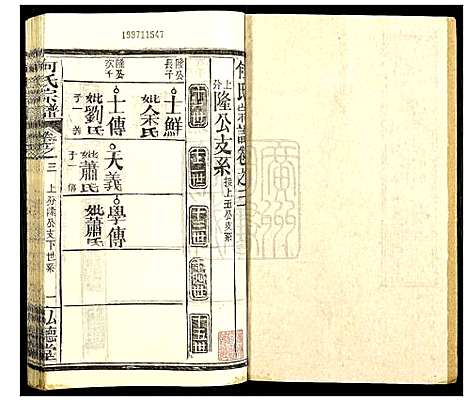 199711547
何氏宗譜卷之三
上分
隆公支系
接上五公支系
十一世
十二世
十三世
十四世
十五世
隆公
長子
士鮮
妣余氏
隆公
次子
士傳
妣劉氏
子一
義
天義
妣蕭氏
子一
傳
學傳
妣蕭氏
何氏宗譜
卷之三
上分隆公支下世系
一
弘德堂